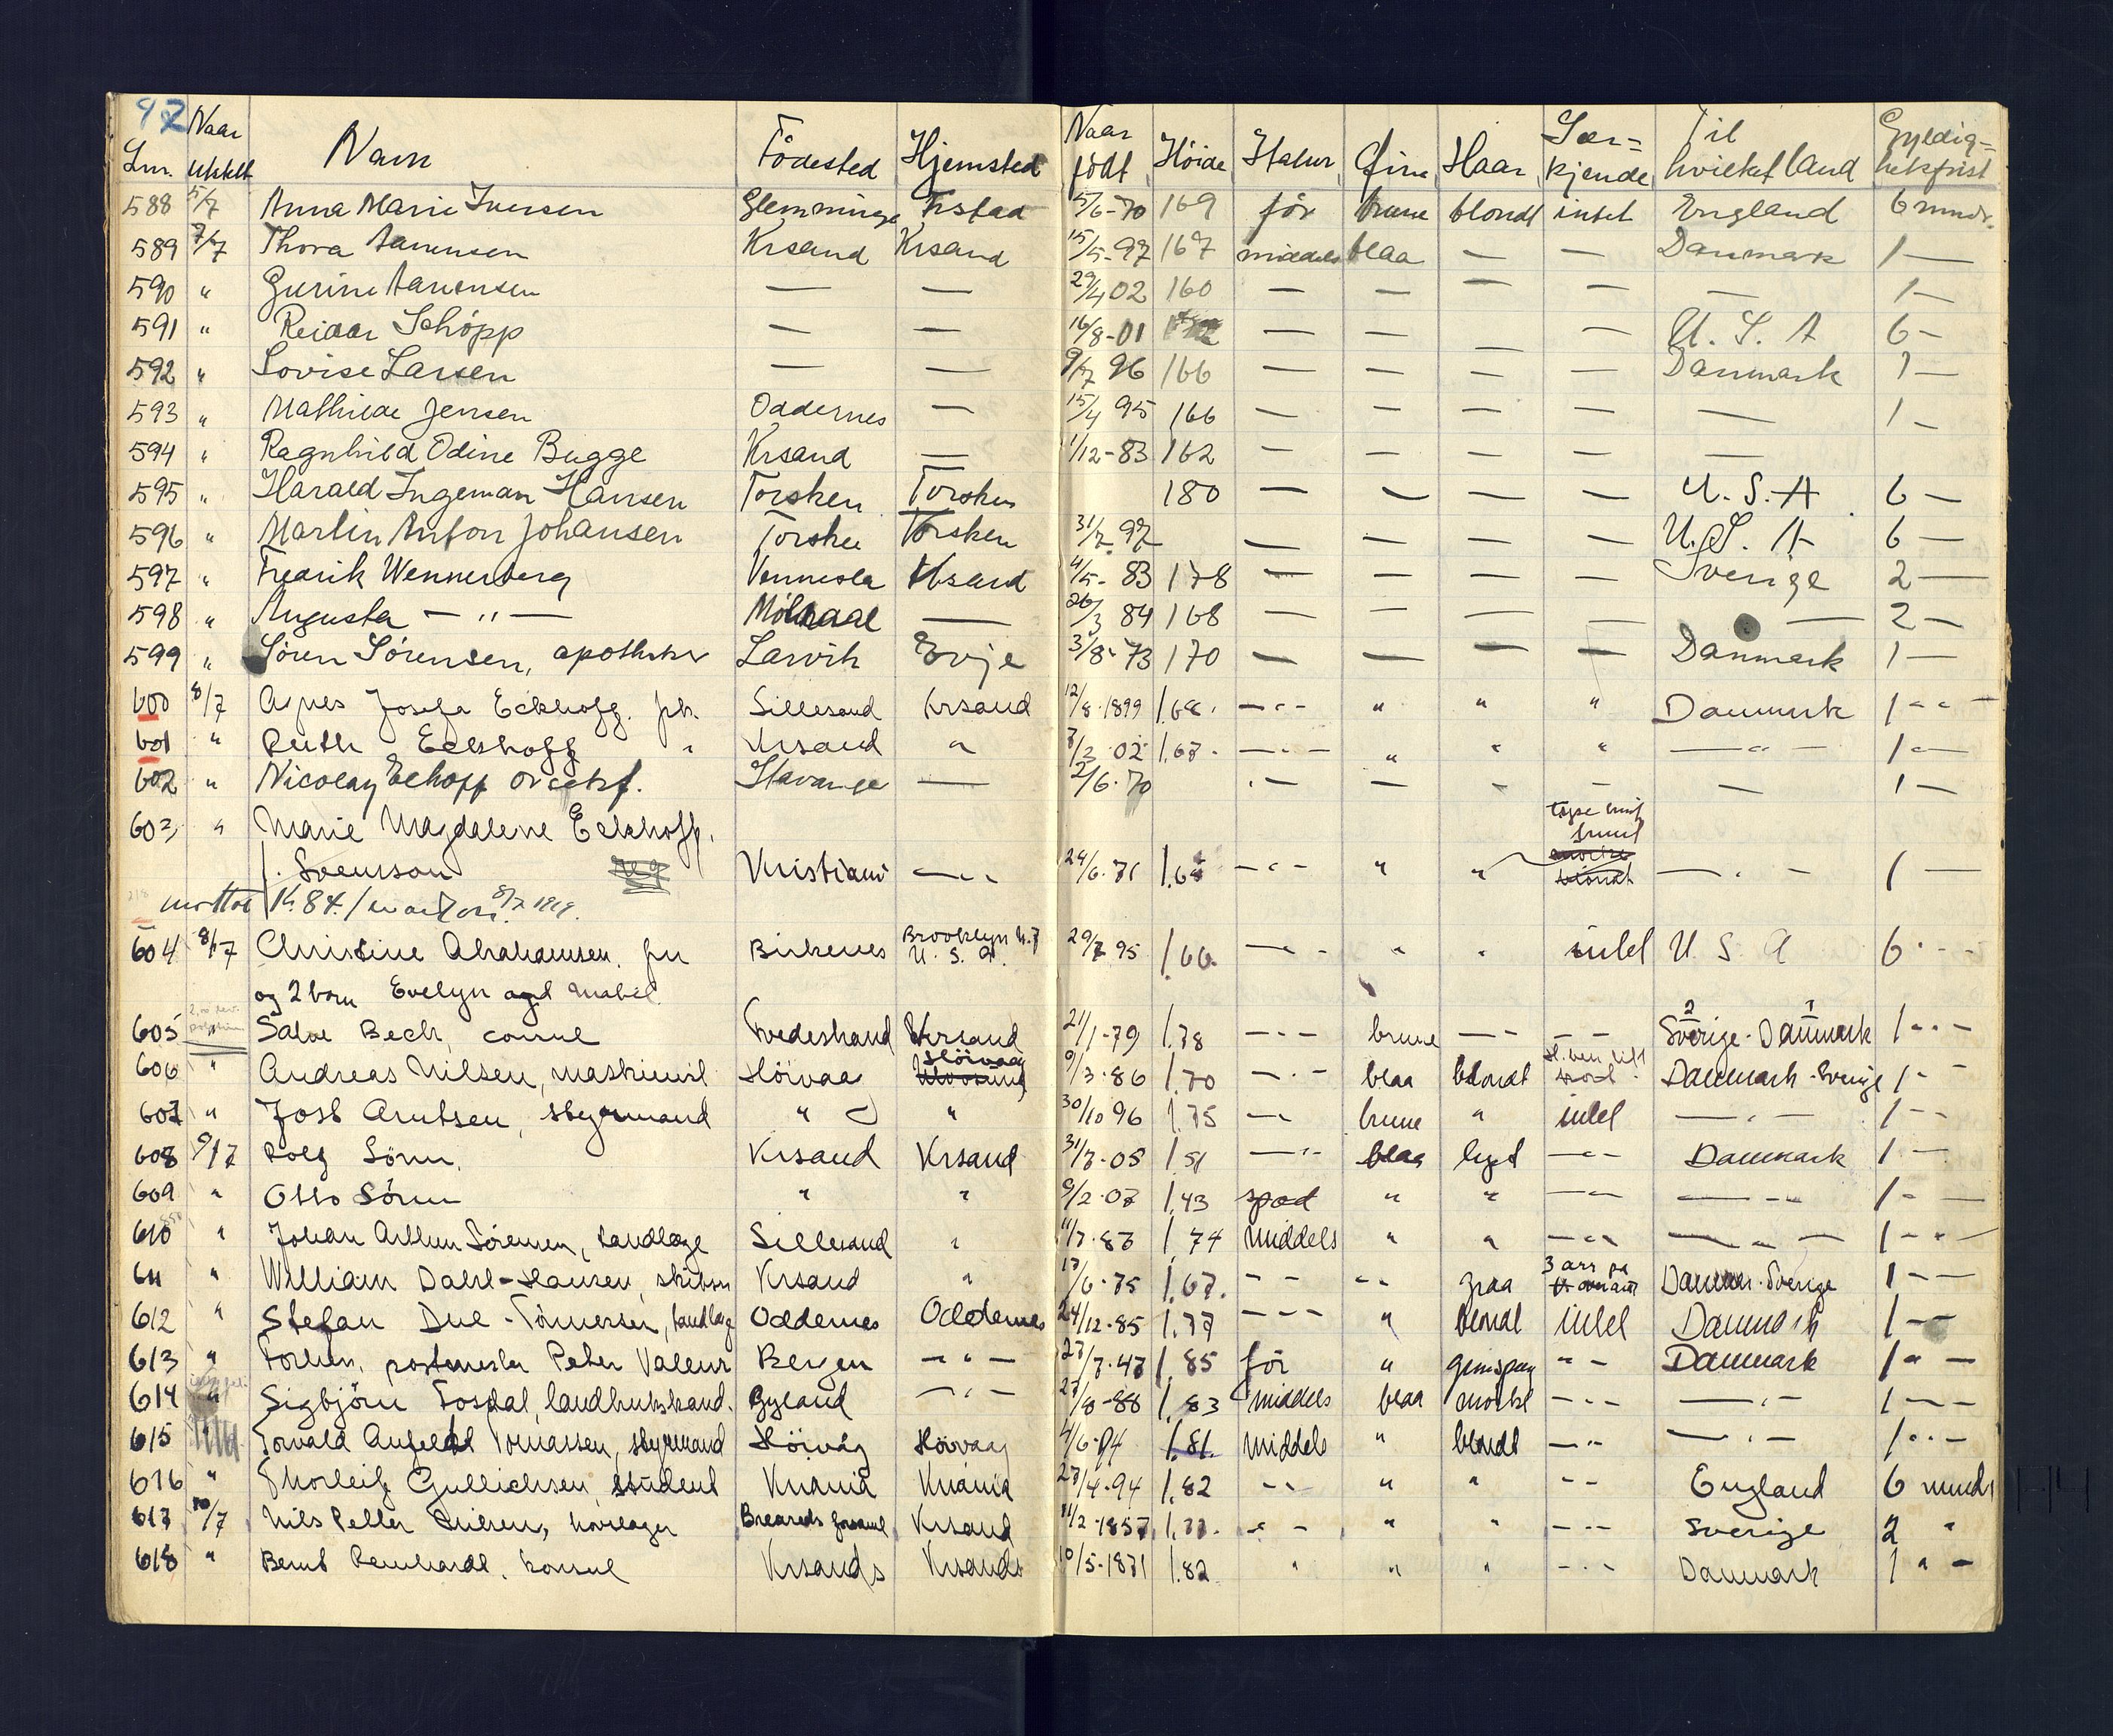 97 Naar Til
Lnr. utstedt Navn Födested Hjemsted Naar födt Höide Statur Öine Haar Sær=kjende Til hvilket land Gyldig=hetsfrist
588 5/7 Anna Marie Iversen Glemminge Frstad 5/6-70 169 før brune blondt intet England 6 mndr.
589 7/7 Thora Aanensen Krsand Krsand 15/5-97 167 middels blaa — — Danmark 1 —
590 " Gurine Aanensen — — 29/4 02 160 — — — — — 1 —
591 " Reidar Schöpp — — 16/8-01 — — — U. S. A 6 —
592 " Lovise Larsen — — 9/7 96 166 — — — — Danmark 1 —
593 " Mathilde Jensen Oddernes — 15/4 95 166 — — — — — 1 —
594 " Ragnhild Odine Bugge Krsand — 1/12-83 162 — — — — —
595 " Harald Ingeman Hansen Torsken Torsken 180 — — — — U. S. A 6 —
596 " Martin Anton Johansen Torsken Torsken 31/7 97 — — — — U. S. A 6 —
597 " Fredrik Wennerberg Vennesla Krsand 4/5- 83 178 — — — — Sverige 2 —
598 " Augusta — " — — 26/3 84 168 — — — — — 2 —
599 " Sören Sörensen, apotheker Larvik Evje 3/8-73 170 — — — — Danmark 1 —
600 8/7 Agnes Josefa Eckhoff. frk. Lillesand Krsand 12/8-1899 1.68. — " — " " " Danmark 1 - " -
601 " Ruth Eckhoff " Krsand " 7/3 02 1.67. — " — " " " — " — 1 —
602 " Nicolay Eckhoff Stavanger — 2/6-70 — — — — — 1 —
603 " Marie Magdalene Eckhoff,
f. Svenson Kristiania — " 29/6.71 — " — " " — " — 1 —
mottat Kr. 84. 8/7 1919.
604 8/7 Christine Abrahamsen. fru Birkenes Brooklyn N.Y U. S. A. 29/7 95 1.66. — " — " " intet U S A 6 - " -
og 2 barn Evelyn og Mabel
605 " Salve Bech, consul Tvedestrand Krsand 21/1-79 1.78 — " — brune — — — — 2 Sverige - 1 Danmark 1 - " -
606 " Andreas Nilsen, maskinist Höivaag Höivaag 9/3-86 1.70 — " — blaa blondt Danmark - Sverige 1 - " -
607 " Jost Arntsen, styrmand " " 30/10 96 1.75 — " brune " intet — " — 1 - -
608 9/7 Rolf Sörn. Krsand Krsand 31/7-05 1.51 — " — blaa lyst — " — Danmark 1 —
609 " Otto Sörn " " 9/2-07 1.43 spæd " " — " — — " — 1 - " —
610 " Johan Arthur Sörensen, tandlæge Lillesand " 11/7-83 1.74 middels " " — " — — " — 1 - " -
611 " William Dahl-Hansen, Krsand " 17/6-75 1.67. — " — - " graa 3 arr pa Danmark - Sverige 1 - " -
612 " Stefan Due-Tönnesen, tandlæge Oddernes Oddernes 24/12-85 1.77 — " — " blondt intet Danmark 1 —
613 " Forhen. postmester Peter Valeur Bergen — " — 27/7-47 1.85 för " — " — Danmark 1 " —
614 " Sigbjörn Fosdal, landbrukskand. Gyland — " — 27/8-88 1.83 middels blaa mörkt — " — — " — 1 - " -
615 " Torvald Tomassen, styrmand Höivåg Höivaag 4/6-94 1.81. middels " blondt — " — — " — 1 - " -
616 " Thorleif Gullichsen, student Krania Krania 27/4-94 1.82 - " - " " - " - England 6 mndr
617 10/7 Nils Petter Krsand 11/2-1857 - " - " " — " — Sverige 2 "
618 " Bernt Reinhardt, konsul Krsands Krsands 10/5-1871 1.82 " " " — " — Danmark 1 " —